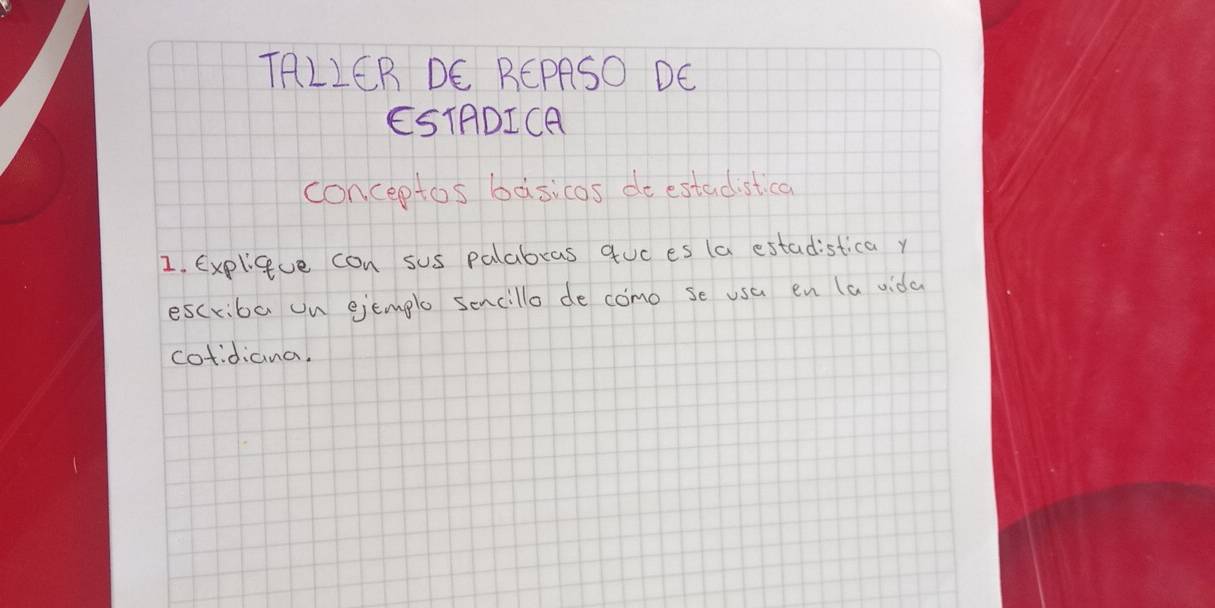 TALLER DE REPASO DE
ESTADICA
conceptos básicos de estadistica
1. Explique con sus palabras que es la estadistica y
escriba un ejemplo sencillo de cómo se usa en la vida
cotidiana.